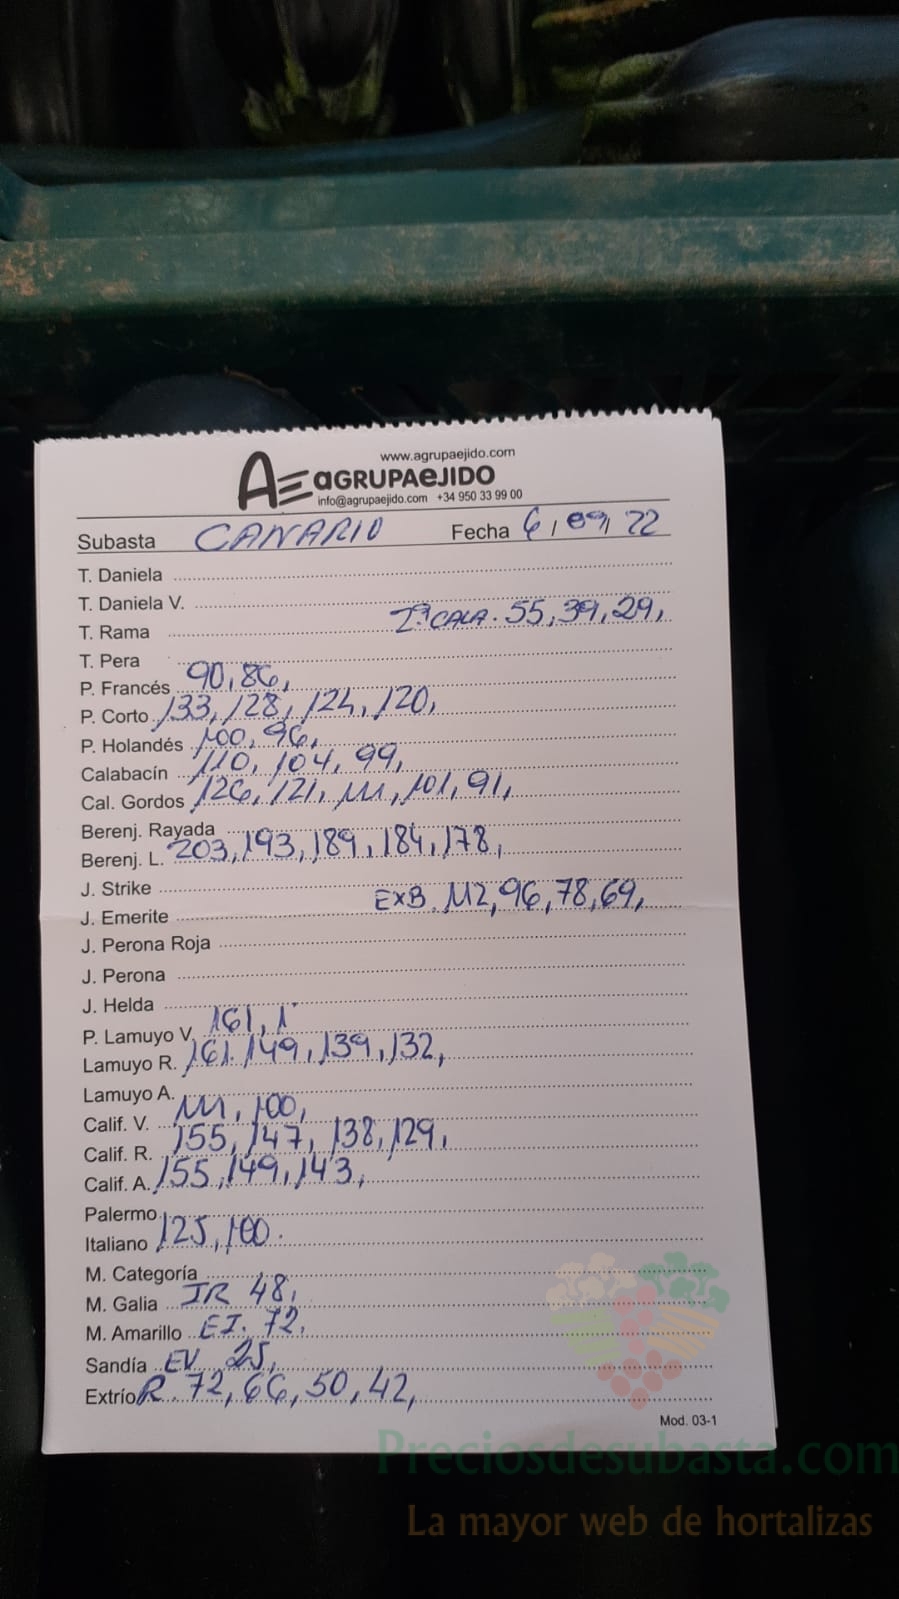 www.agrupaejido.com
AE aGRUPAeJIDO
info@agrupaejido.com +34 950 33 99 00
Subasta CANARIO Fecha 6 / 09 / 22
T. Daniela
T. Daniela V.
T. Rama 2ª CALA. 55, 39, 29,
T. Pera
P. Francés 90, 86,
P. Corto 133, 128, 124, 120,
P. Holandés 100, 96,
Calabacín 110, 104, 99,
Cal. Gordos 126, 121, 111, 101, 91,
Berenj. Rayada
Berenj. L. 203, 193, 189, 184, 178,
J. Strike
J. Emerite EXB. 112, 96, 78, 69,
J. Perona Roja
J. Perona
J. Helda
P. Lamuyo V. 161, 1
Lamuyo R. 161. 149, 139, 132,
Lamuyo A.
Calif. V. 111, 100,
Calif. R. 155, 147, 138, 129,
Calif. A. 155, 149, 143,
Palermo
Italiano 125, 100.
M. Categoría
M. Galia IR 48,
M. Amarillo EI. 72,
Sandía EV 25,
Extrío R. 72, 66, 50, 42,
Mod. 03-1
Preciosdesubasta.com
La mayor web de hortalizas